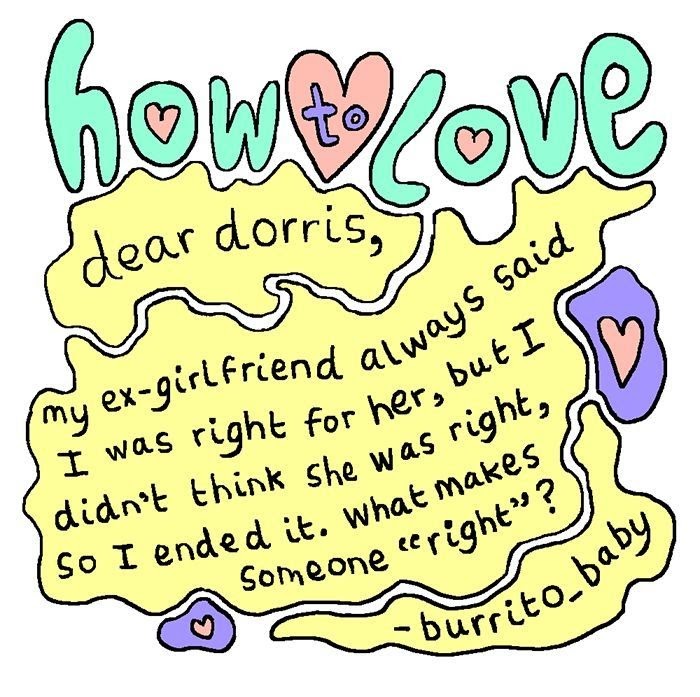 how to love
dear dorris,
my ex-girlfriend always said
I was right for her, but I
didn't think she was right,
so I ended it. what makes
someone "right"?
-burrito_baby